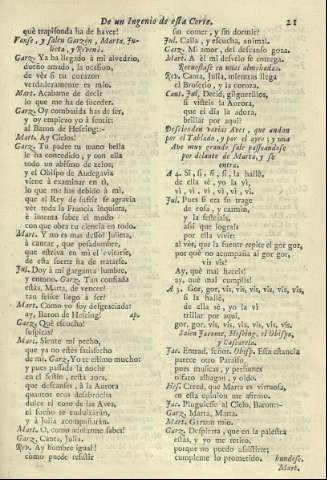 De un Ingenio de esta Corte. 21
què transfonda ha de haver!
Vanse, y salen Garzòn, Marta, Ju-
lieta, y Reveni.
Garz. Ya ha llegado à mi alvedrio,
dueño amado, la ocasion,
de vèr si tu corazon
verdaderamente es mio.
Mart. Acabame de decir
lo que me ha de suceder.
Garz. Oy combatida has de ser,
y oy empiezo yo à sentir
al Baron de Hescing:-
Mart. Ay Cielos!
Garz. Tu padre tu mano bella
le ha concedido, y con ella
todo un abismo de zelos;
y el Obispo de Audegavia
viene à examinar en tì,
lo que me has debido à mì,
que al Rey de
vèr toda la Francia inquieta,
è intenta saber el modo
con que obra tu ciencia en todo.
Mart. Y no es mas desse? Julieta,
à cantar, que pesadumbre,
que estriva en mì el evitarse,
de esta suerte ha de tratarse.
Jul. Doy à mi garganta lumbre,
y entono. Garz. Tan confiada
estàs, Marta, de vencer?
tan felice llego à ser?
Mart. Como yo soy desgraciada!
ay, Baron de Hescing! ap.
Garz. Què escucho!
suspiras?
Mart. Siente mi pecho,
que ya no estès satisfecho
de mì. Garz. Yo te estimo mucho:
y pues passada la noche
en el festin, està aora,
que descanses, à la Aurora
quantos ecos desabrocha
dulce el coro de las Aves,
el sueño te endulzaràn,
y à Julia acompañaràn.
Mart. O, còmo adularme sabes!
Garz. Canta, Julia.
Rev. Ay hombre igual!
còmo puede resistir
sin comer, y sin dormir?
Jul. Calla, y escucha, animal.
Garz. Mi amor, del descanso goza.
Mart. A èl mi desvelo se entrega.
Recuestase en unas almohadas.
Rev. Canta, Julia, mientras llega
el Broserio, y la coroza.
Cant. Jul. Decid, gilguerillos,
si visteis la Aurora,
que el dia la adora,
brillar por aqui?
Descienden varias Aves, que andan
por el Tablado, y por el ayre; y una
Ave muy grande sale passeandose
por delante de Marta, y se
entra.
A 4. Sì, si, si, A la hallè,
de ella sè, yo la vì,
vì, vì, vì, vì, vì, vì, vì.
Jul. Pues si era su trage
de rosa, y carmin,
y la festejais,
assi que logreis
por ella vivir:
al vèr, que la fuente repite el gor gor,
por què no acompaña al gor gor,
vis vis?
Ay, què mal haceis!
ay, què mal cumplis!
A 3. Gor, gor, vis, vis, vis, vis, vis, vis,
si la hallè,
de ella sè, yo la vì
trillar por aqui,
gor, gor, vis, vis, vis, vis, vis, vis.
Salen Jacome, Hescing, el Obispo,
y Cascarela.
Jac. Entrad, señor. Obisp. Esta estancia
parece otro Paraìso,
pues musicas, y perfumes
olfato albagan, y oìdo.
Hes. Creed, que Marta es virtuosa,
en esta opinion me afirmo.
Jac. Pluguiesse al Cielo, Baron:-
Garz. Marta, Marta.
Mart. Garzon mio.
Garz. Despierta, que en la palestra
estàs, y yo me retiro,
porque no puedo assistirte;
cumpleme lo prometido. hundese.
Mart.